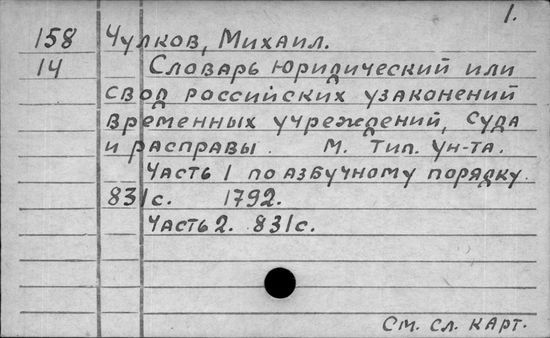 1.
158 Чулков, Михаил.
14 Словарь юридический или
свод российских узаконений
временных учреждений, суда
и расправы. М. Тип. Ун-та.
Часть 1 по азбучному порядку.
831с. 1792.
Часть 2. 831с.
См. сл. карт.